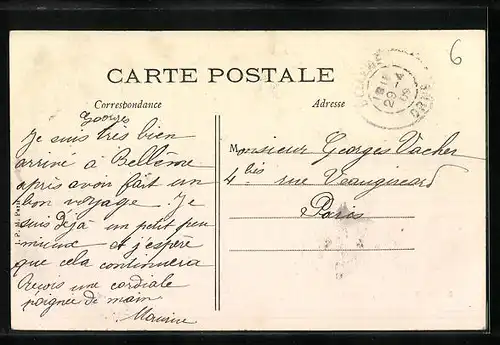 6
CARTE POSTALE
Correspondance
Adresse
Georges
Je suis très bien
arrivé à Bellême
après avoir fait un
bon voyage. Je
suis déjà un petit peu
mieux et j'espère
que cela continuera
Reçois une cordiale
poignée de main
Maurice
Monsieur Georges Vacher
4 bis rue
Paris
18 15
29 -4
09
ORNE